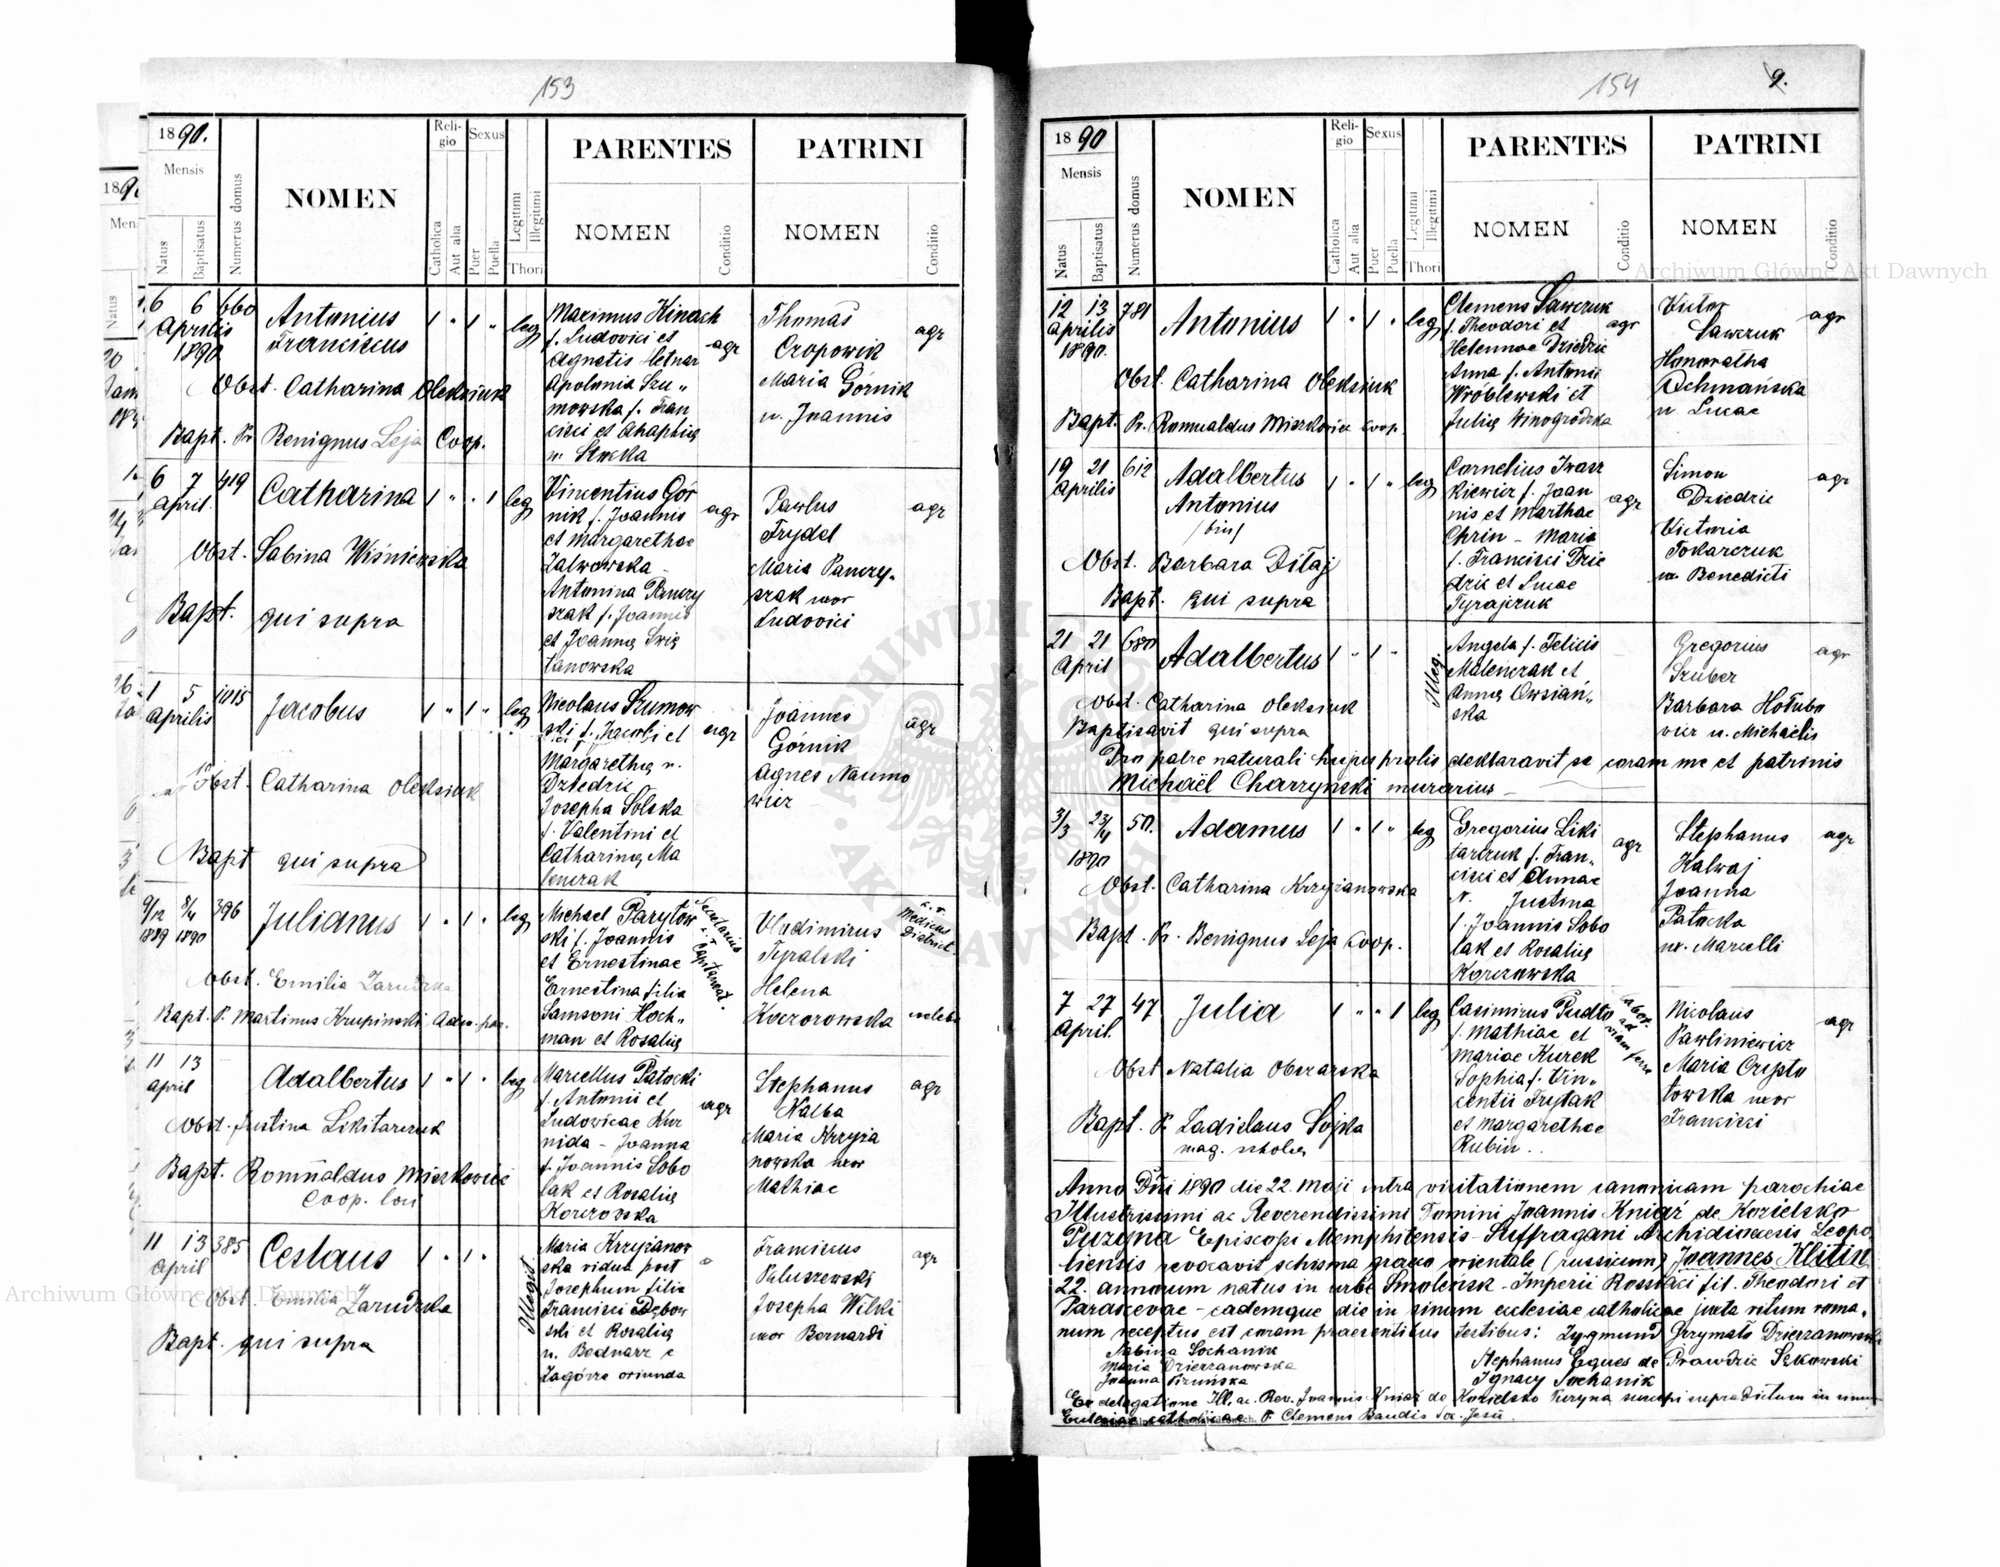 153
1890.
Mensis
Natus
Baptisatus
Numerus domus
NOMEN
Religio
Catholica
Aut alia
Sexus
Puer
Puella
Legitimi
Illegitimi
Thori
PARENTES
NOMEN
Conditio
PATRINI
NOMEN
Conditio
6 6 660
Aprilis
1890
Antonius
Franciscus
1 " 1 " leg
Maximus Hinach
f. Ludovici et
Agnetis Hetnar
Apolonia Szu"
mowska f. Fran
cisci et Agaphię
agr
Thomas
Cropowik
Maria Górnik
u. Joannis
agr
Obst. Catharina Oleksiuk
Bapt. Pr. Benignus Leja Coop.
6 7 419
April.
Catharina
1 " " 1 leg
Vincentius Gór
nik f. Joannis
et Margarethae
Zalwowska -
Antonina Panczy
szak f. Joannis
et Joannę Swię
tanowska
agr
Pawlus
Frydel
Maria Panczy-
szak uxor
Ludovici
agr
Obst. Sabina Wiśniewska
Bapt. qui supra
1 5 1015
Aprilis
Jacobus
1 " 1 " leg
Nicolaus Szumow
ski f. Jacobi et
Margarethę n.
Dziedzic
Josepha Solska
f. Valentini et
Catharinę Ma
lenczak
agr
Joannes
Górnik
Agnes Naumo
wicz
agr
Obst. Catharina Oleksiuk
Bapt qui supra
9/12 8/4 396
1889 1890
Julianus
1 " 1 " leg
Michael Parytow
ski f. Joannis
et Ernestinae
Ernestina filia
Samsoni Hoch"
man et Rosalię
Secretarius
c. r. Capitaneat.
Vladimirus
Tyralski
Helena
Koczorowska
c. r.
Medicus
District.
caelebs
Obst. Emilia Zarudzka
Bapt. P. Martinus Krupinski Adm. par.
11 13
April
Adalbertus
1 " 1 " leg
Marcellus Patocki
f. Antonii et
Ludovicae Kur
nida - Joanna
f. Joannis Sobo
lak et Rosalię
Korczowska
agr
Stephanus
Kalba
Maria Krzyża
nowska uxor
Mathiae
agr
Obst. Justina Likitarczuk
Bapt. Romualdus Mierkowicz
Coop. loci
11 13 385
April
Ceslaus
1 " 1 "
Illegit
Maria Krzyżanow
ska vidua post
Josephum filia
Francisci Dębow
ski et Rosalię
n. Bednarz e
Zagórze oriunda
Franciscus
Paluszewski
Josepha Wilki
uxor Bernardi
agr
Obst. Emilia Zarudzka
Bapt. qui supra
154
9.
1890
Mensis
Natus
Baptisatus
Numerus domus
NOMEN
Religio
Catholica
Aut alia
Sexus
Puer
Puella
Legitimi
Illegitimi
Thori
PARENTES
NOMEN
Conditio
PATRINI
NOMEN
Conditio
12 13 781
Aprilis
1890.
Antonius
1 " 1 " leg
Clemens Sawczuk
f. Theodori et
Helennae Dziedzic
Anna f. Antonii
Wróblewski et
Julię Winogrodzka
agr
Victor
Sawczuk
Honoratha
Rehmańska
u. Lucae
agr
Obst. Catharina Oleksiuk
Bapt. Pr. Romualdus Mierkowicz Coop.
19 21 612
Aprilis
Adalbertus
Antonius
/bin/
1 " 1 " leg
Cornelius Iwasz
kiewicz f. Joan
nis et Marthae
Chrin - Maria
f. Francisci Dzie
dzic et Lucae
Tyrajczuk
agr
Simon
Dziedzic
Victoria
Tokarczuk
ux. Benedicti
agr
Obst. Barbara Ditaj
Bapt. qui supra
21 21 680
April
Adalbertus
1 " 1 "
Illeg.
Angela f. Felicis
Malenczak et
Annę Owsiań"
ska
Gregorius
Szuber
Barbara Hołubo
wicz u. Michaelis
agr
Obst. Catharina Oleksiuk
Baptisavit qui supra
Pro patre naturali hujus prolis declaravit se coram me et patrinis
Michaël Charzynski murarius
3/3 23/4 50.
1890
Adamus
1 " 1 " leg
Gregorius Liki
tarczuk f. Fran"
cisci et Annae
N. Justina
f. Joannis Sobo
lak et Rosalię
Korczowska
agr
Stephanus
Kalwaj
Joanna
Patocka
ux. Marcelli
agr
Obst. Catharina Krzyżanowska
Bapt. Pr. Benignus Leja Coop.
7 27 47
April.
Julia
1 " " 1 leg
Casimirus Pudło
f. Mathiae et
Mariae Kurek
Sophia f. Vin"
centii Frytak
et Margarethae
Rubin..
Nicolaus
Pawliniewicz
Maria Crypto
towska uxor
Francisci
agr
Obst Natalia Obczarska
Bapt. P. Ladislaus Sojka
mag. scholię
Anno Dni 1890 die 22. Maji intra visitationem canonicam parochiae
Illustrissimi ac Reverendissimi Domini Joannis Kniaz de Kozielsko
Puzyna Episcopi Memphitensis - Suffragani Archidioecesis Leopo
liensis revocavit schisma graeco orientale (russicum) Joannes Klitin
22. annorum natus in urbe Smoleńsk - Imperii Rossiaci fil. Theodori et
Paraskevae - eademque die in sinum ecclesiae catholicae juxta ritum roma-
num receptus est coram praesentibus testibus: Zygmund Grzymała Dzierzanowski
Sabina Sochanik
Maria Dzierzanowska
Stephanus Eques de Prawdzic Sękowski
Ignacy Sochanik
Ex delegatione Ill. ac. Rev. Joannis Kniaź de Kozielsko Puzyna suscepi supradictum in sinum
Ecclesiae catholicae P. Clemens Baudis Soc. Jesu.
Archiwum Główne Akt Dawnych
Archiwum Główne Akt Dawnych
ARCHIWUM GŁÓWNE AKT DAWNYCH